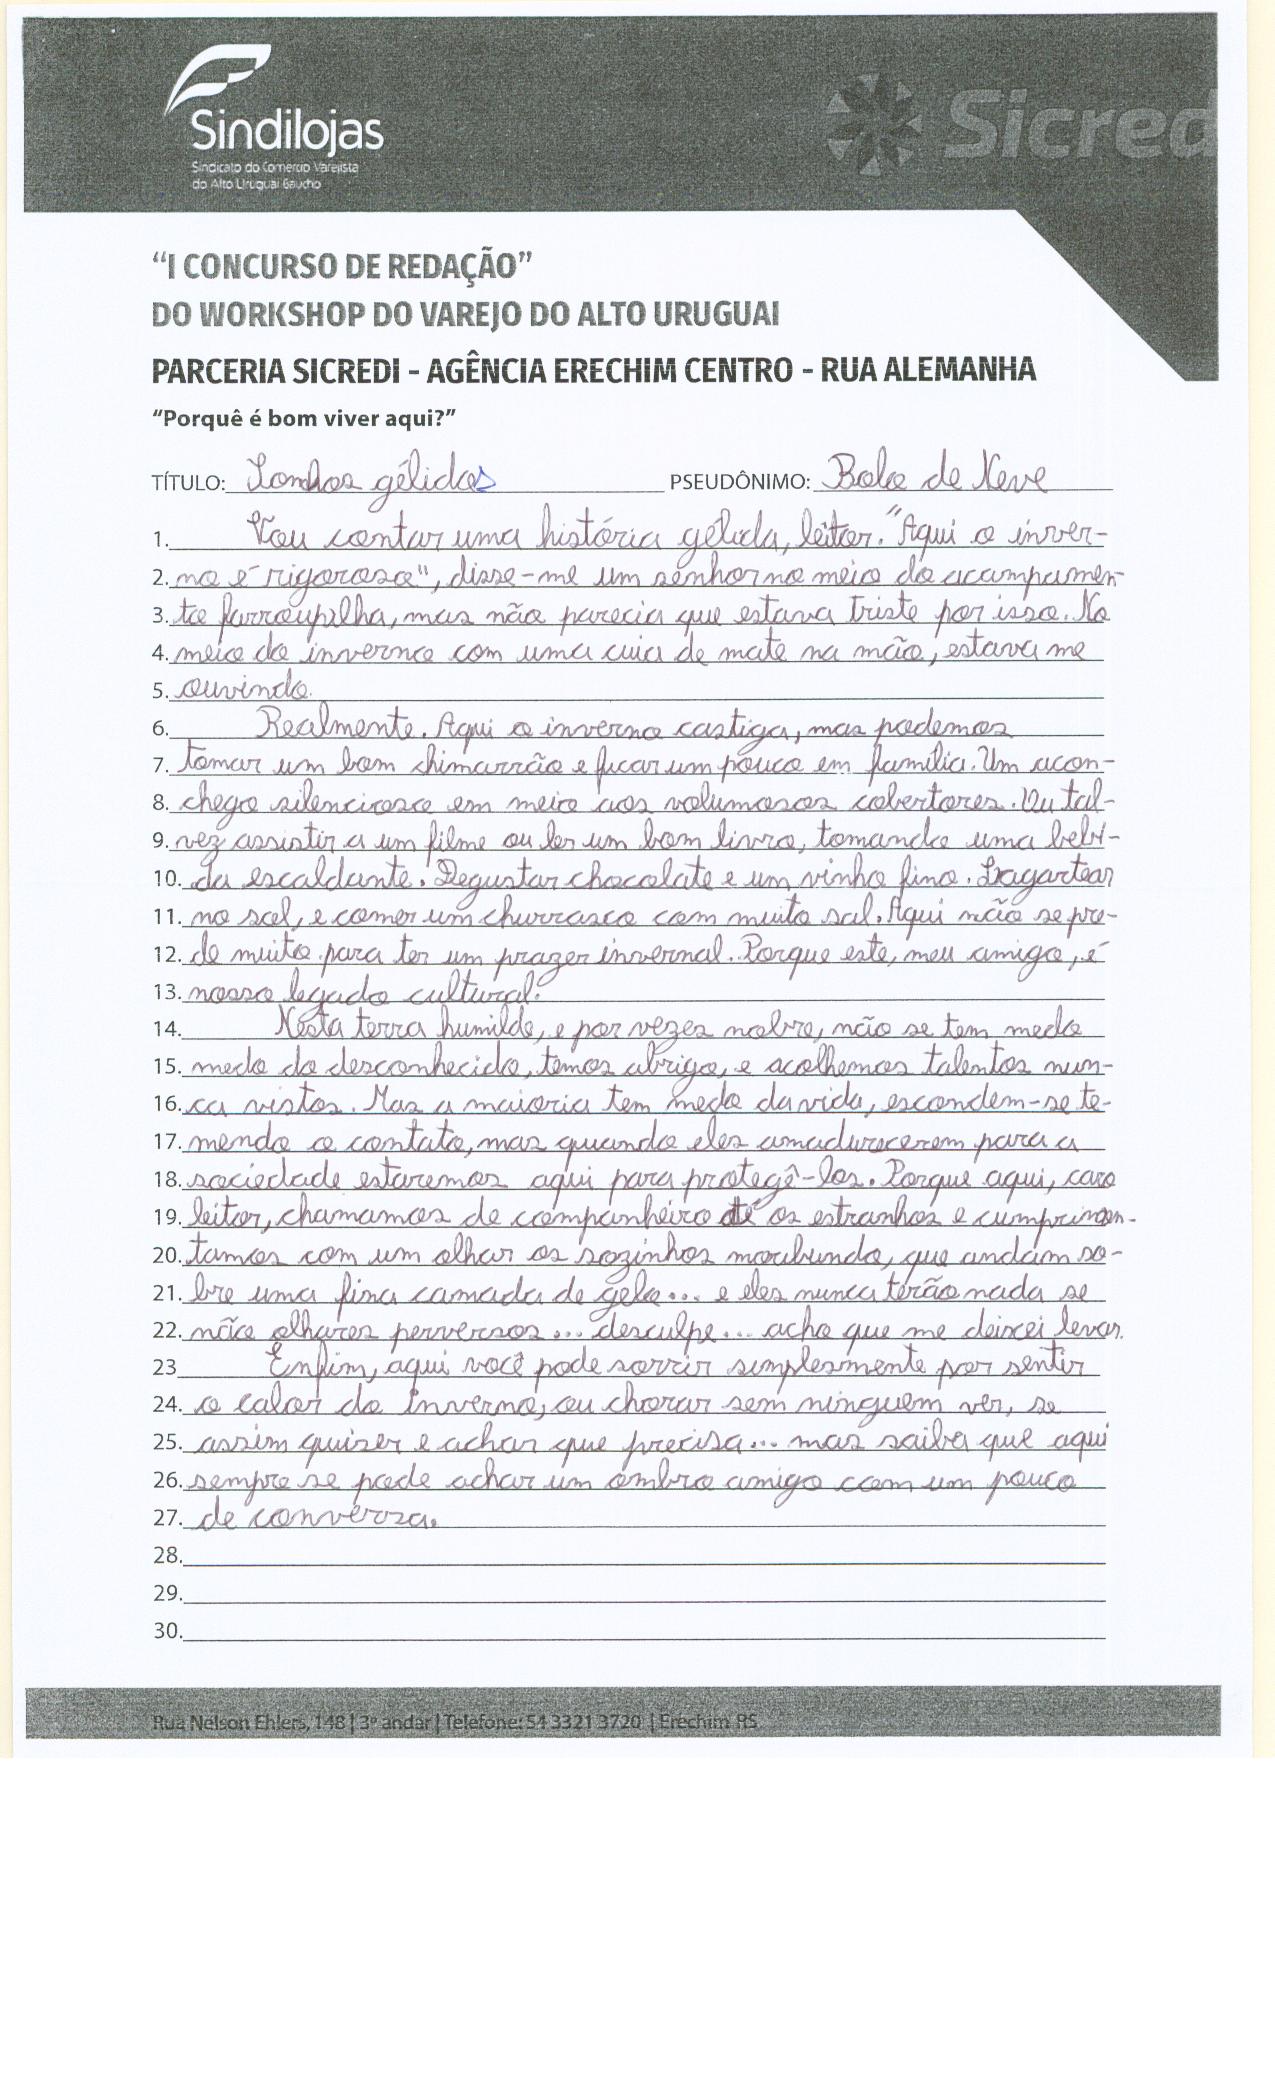 Sindilojas
Sindicato do Comercio Varejista
do Alto Uruguai Gaucho
Sicred
“I CONCURSO DE REDAÇÃO”
DO WORKSHOP DO VAREJO DO ALTO URUGUAI
PARCERIA SICREDI - AGÊNCIA ERECHIM CENTRO - RUA ALEMANHA
“Porquê é bom viver aqui?”
TÍTULO: Sonhos gélidos PSEUDÔNIMO: Bola de Neve
1. Vou contar uma história gélida, leitor. "Aqui o inver-
2. no é rigoroso", disse-me um senhor no meio do acampamen-
3. to farroupilha, mas não parecia que estava triste por isso. No
4. meio do inverno com uma cuia de mate na mão, estava me
5. ouvindo.
6. Realmente. Aqui o inverno castiga, mas podemos
7. tomar um bom chimarrão e ficar um pouco em família. Um acon-
8. chego silencioso em meio aos volumosos cobertores. Ou tal-
9. vez assistir a um filme ou ler um bom livro, tomando uma bebi-
10. da escaldante. Degustar chocolate e um vinho fino. Lagartear
11. no sol, e comer um churrasco com muito sal. Aqui não se pre-
12. de muito para ter um prazer invernal. Porque este, meu amigo, é
13. nosso legado cultural.
14. Nesta terra humilde, e por vezes nobre, não se tem medo
15. medo do desconhecido, temos abrigo, e acolhemos talentos nun-
16. ca vistos. Mas a maioria tem medo da vida, escondem-se te-
17. mendo o contato, mas quando eles amadurecerem para a
18. sociedade estaremos aqui para protegê-los. Porque aqui, caro
19. leitor, chamamos de companheiro até os estranhos e cumprimen-
20. tamos com um olhar os sozinhos moribundo, que andam so-
21. bre uma fina camada de gelo... e eles nunca terão nada se
22. não olhares perversos... desculpe... acho que me deixei levar.
23 Enfim, aqui você pode sorrir simplesmente por sentir
24. o calor do inverno, ou chorar sem ninguém ver, se
25. assim quiser e achar que precisa... mas saiba que aqui
26. sempre se pode achar um ombro amigo com um pouco
27. de converza.
28.
29.
30.
Rua Nelson Ehlers, 148 | 3º andar | Telefone: 54 3321 3720 | Erechim RS